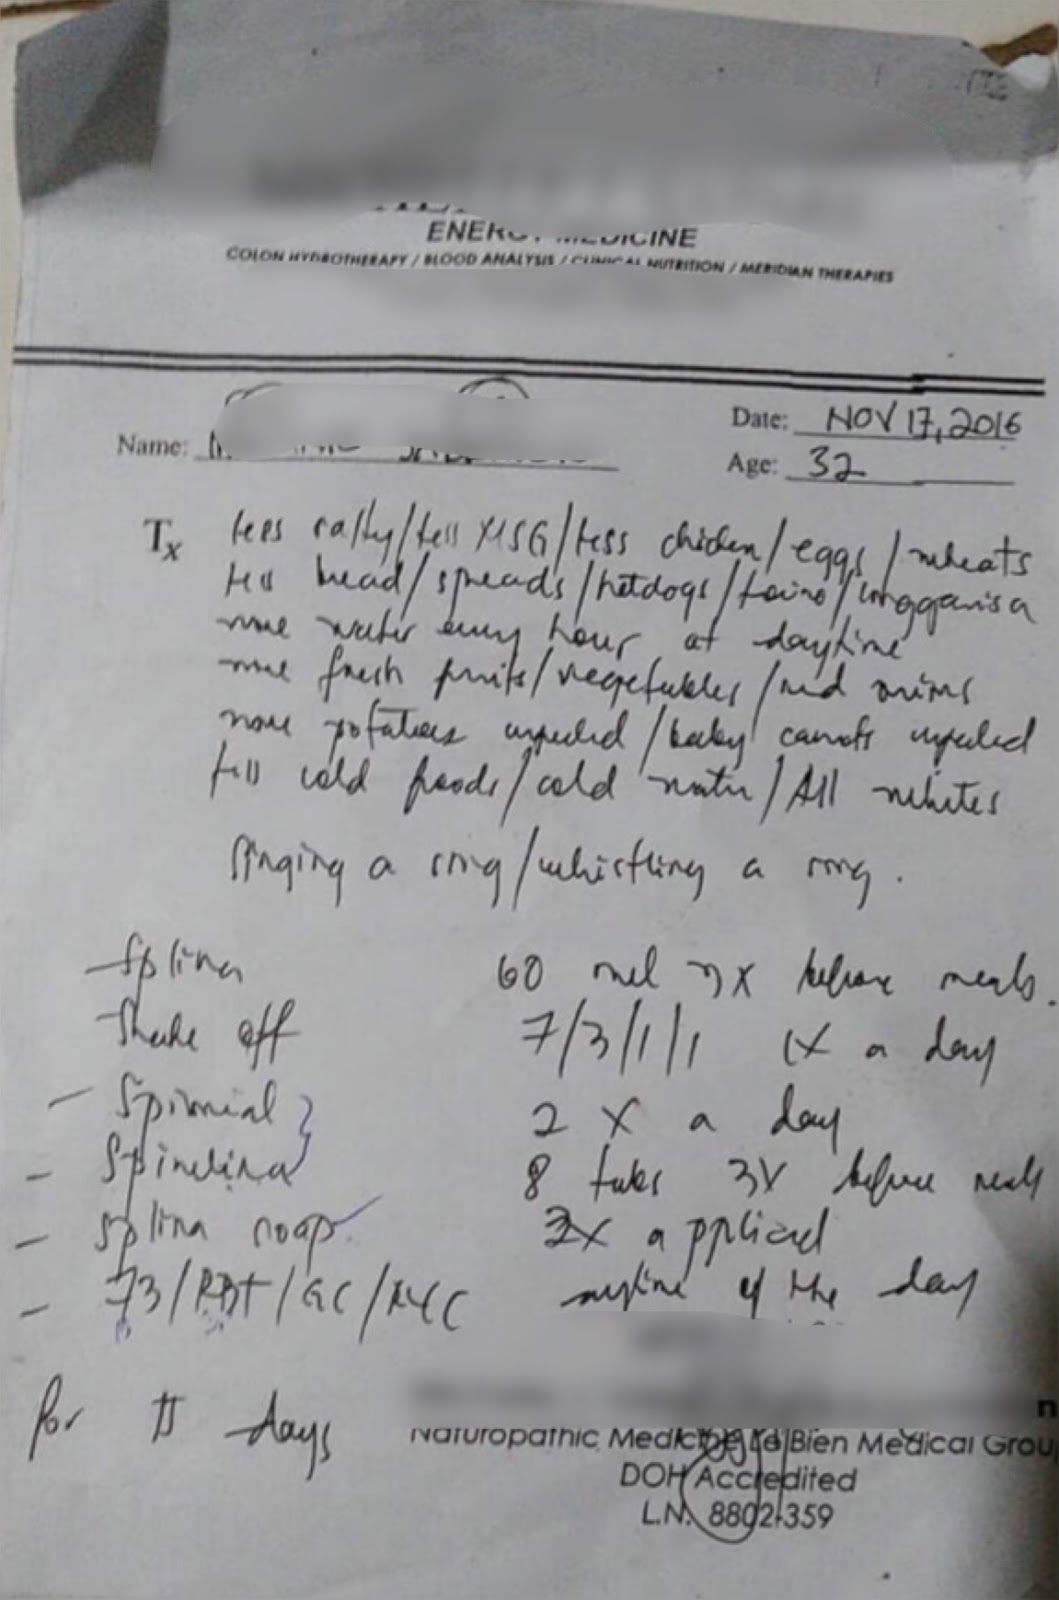 ENERGY MEDICINE
COLON HYDROTHERAPY / BLOOD ANALYSIS / CLINICAL NUTRITION / MERIDIAN THERAPIES
Date: NOV 17, 2016
Name:
Age: 32
Tx less salty/less MSG/less chicken/eggs/wheats
less bread/spreads/hotdogs/tocino/longganisa
more water every hour at daytime
more fresh fruits/vegetables/red onions
more potatoes unpeeled/baby carrots unpeeled
less cold foods/cold water/All whites
singing a song/whistling a song.
Splina 60 mel 3x before meals.
Shake off 7/3/1/1 1X a day
- Spimial 2 X a day
- Spinelina 8 tabs 3X before meals
- Splina soap applied
- 73/RBT/GC/ anytime of the day
for days
Naturopathic Medicine Bien Medical Grou
DOH Accredited
L.N. 8802-359